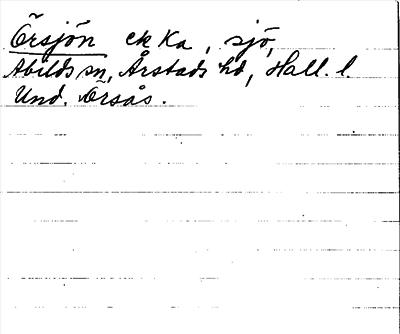 Örsjön ek Ka, sjö,
Abilds sn, Årstads hd, Hall. l.
Und. Örsås.